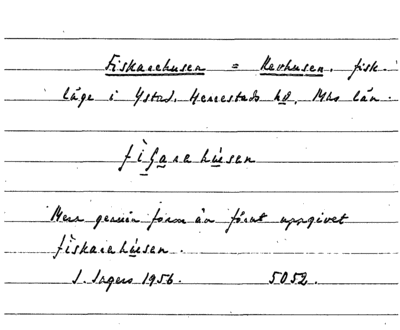 Fiskarehusen = Revhusen, fisk-
läge i Ystad, Herrestads hd, Mhs län.
fiGarahúsen
Mera genuin form än förut uppgivet
fiskarahúsen.
I. Ingers 1956. 5052.